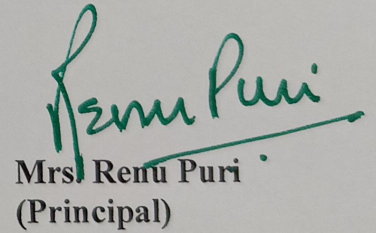 Renu Puri
Mrs. Renu Puri
(Principal)